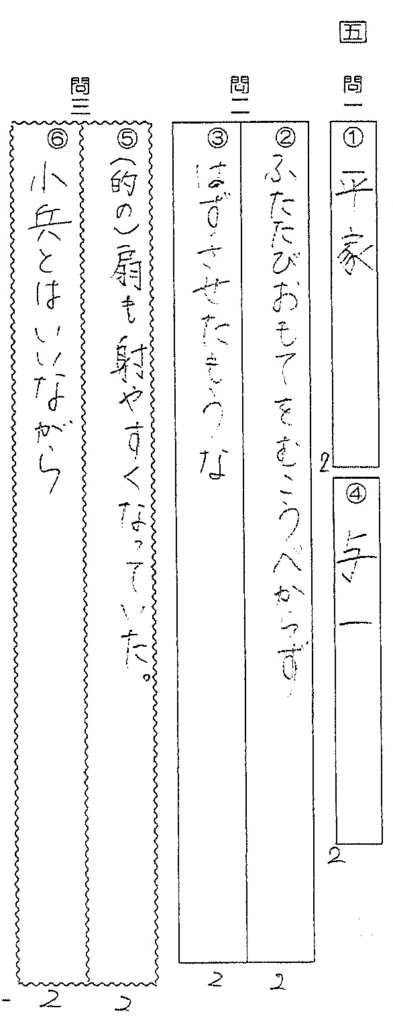 五
問一
① 平家
2
④ 与一
2
問二
② ふたたびおもてをむこうべからず
2
③ はずさせたもうな
2
問三
⑤ (的の)扇も射やすくなっていた。
2
⑥ 小兵とはいいながら
2